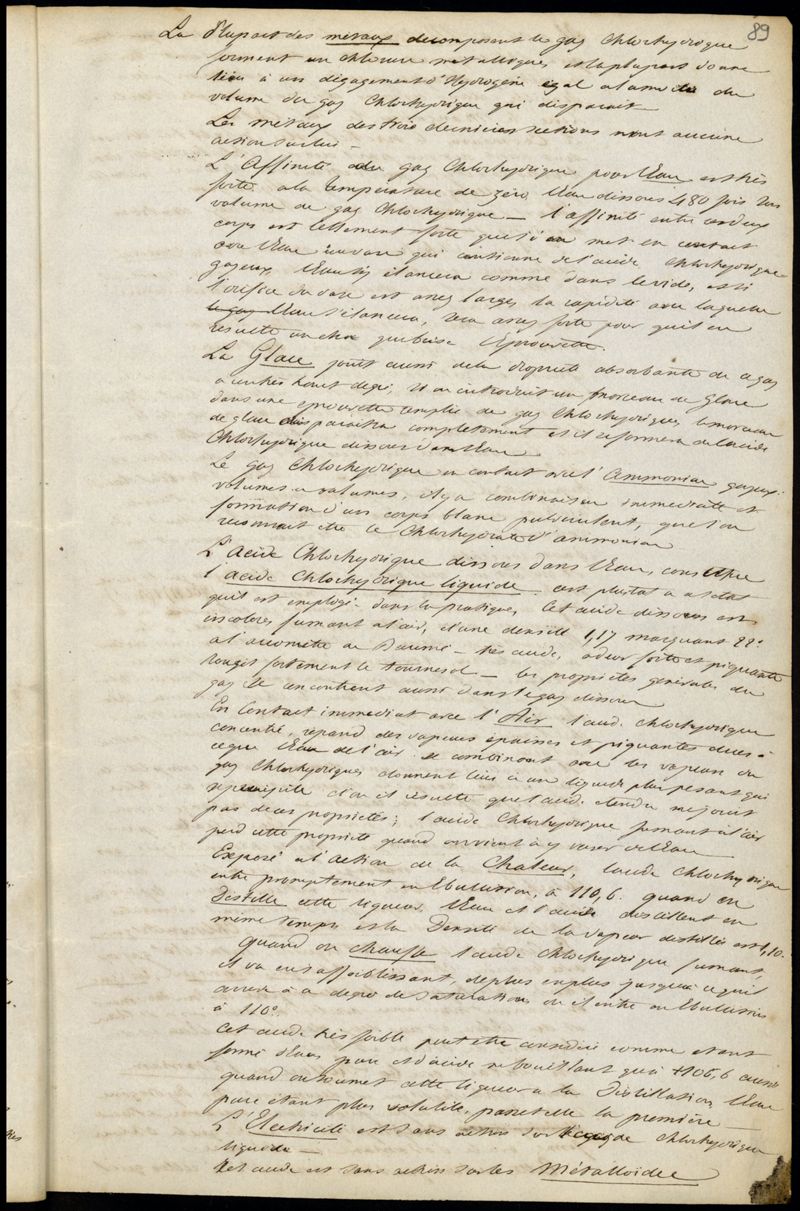 89
La Plupart des métaux décomposent le gaz Chlorhydrique
forment un chlorure métallique, et la plupart donne
lieu à un dégagement d'Hydrogène égal a la moitié du
volume du gaz Chlorhydrique qui disparait
Les métaux des trois dernières sections n'ont aucune
action sur lui —
L'Affinité du gaz Chlorhydrique pour l'Eau est très
forte a la température de zéro l'Eau dissous 480 fois son
volume de gaz Chlorhydrique — l'affinité entre ces deux
corps est tellement forte que si on met en contact
avec l'Eau un vase qui contienne de l'acide Chlorhydrique
gazeux, l'Eau s'y élancera comme dans le vide, et si
l'orifice du vase est assez large, la rapidité avec laquelle
le gaz l'Eau s'élancera, sera assez forte pour qu'il en
résulte un choc qui brise l'éprouvette.
La Glace jouit aussi de la propriété absorbante de ce gaz
a un très haut degré, si on introduit un morceau de Glace
dans une éprouvette remplie de gaz Chlorhydrique, le morceau
de glace disparaitra complètement et il se formera de l'acide
Chlorhydrique dissous dans l'Eau
Le gaz Chlorhydrique en contact avec l'Ammoniac gazeux
volumes a volumes, il y a combinaison immédiate et
formation d'un corps blanc pulvérulent, que l'on
reconnait être le Chlorhydrate d'ammoniac
L'acide Chlorhydrique dissous dans l'Eau, constitue
l'acide Chlorhydrique liquide. c'est plutôt a cet état
qu'il est employé dans la pratique, Cet acide dissous est
incolore, fumant a l'air, d'une densité 1,17 marquant 22°
a l'aréomètre de Baumé — très acide, odeur forte et piquante
Rougit fortement le tournesol — les propriétés générales du
gaz se rencontrent aussi dans le gaz dissous
En Contact immédiat avec l'Air l'acid. Chlorhydrique
concentré, répand des vapeurs épaisses et piquantes dues à
ce que l'Eau de l'air se combinant avec les vapeurs du
gaz Chlorhydrique, donnent lieu à un liquide plus pesant qui
se précipite d'où il résulte que l'acide étendu ne jouit
pas de ces propriétés; l'acide Chlorhydrique fumant à l'air
perd cette propriété quand on vient à y verser de l'Eau
Exposé a l'action de la Chaleur, l'acide Chlorhydrique
entre promptement en Ebulition, à 110,6. quand on
Distille cette liqueur, l'Eau et l'acide distillent en
même temps et la Densité de la vapeur distillée est 1,10.
Quand on chauffe l'acide Chlorhydrique fumant,
il va en s'affaiblissant, de plus en plus jusqu'à ce qu'il
arrive à un degré de saturation où il entre en Ebulition
à 110°.
Cet acide très faible peut être considéré comme étant
formé d'Eau pure et d'acide ne bouillant qu'à +106,6 aussi
quand on soumet cette liqueur a la Distillation, l'Eau
pure étant plus volatile, passe-t-elle la première —
L'Electricité est sans action sur l'acide Chlorhydrique
liquide —
Cet acide est sans action sur les Métalloïdes